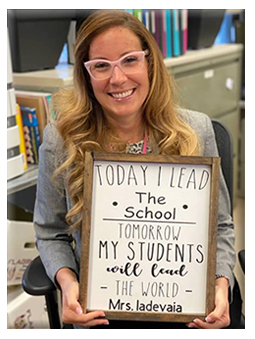 TODAY I LEAD
The
School
TOMORROW
MY STUDENTS
will lead
- THE WORLD -
Mrs. Iadevaia